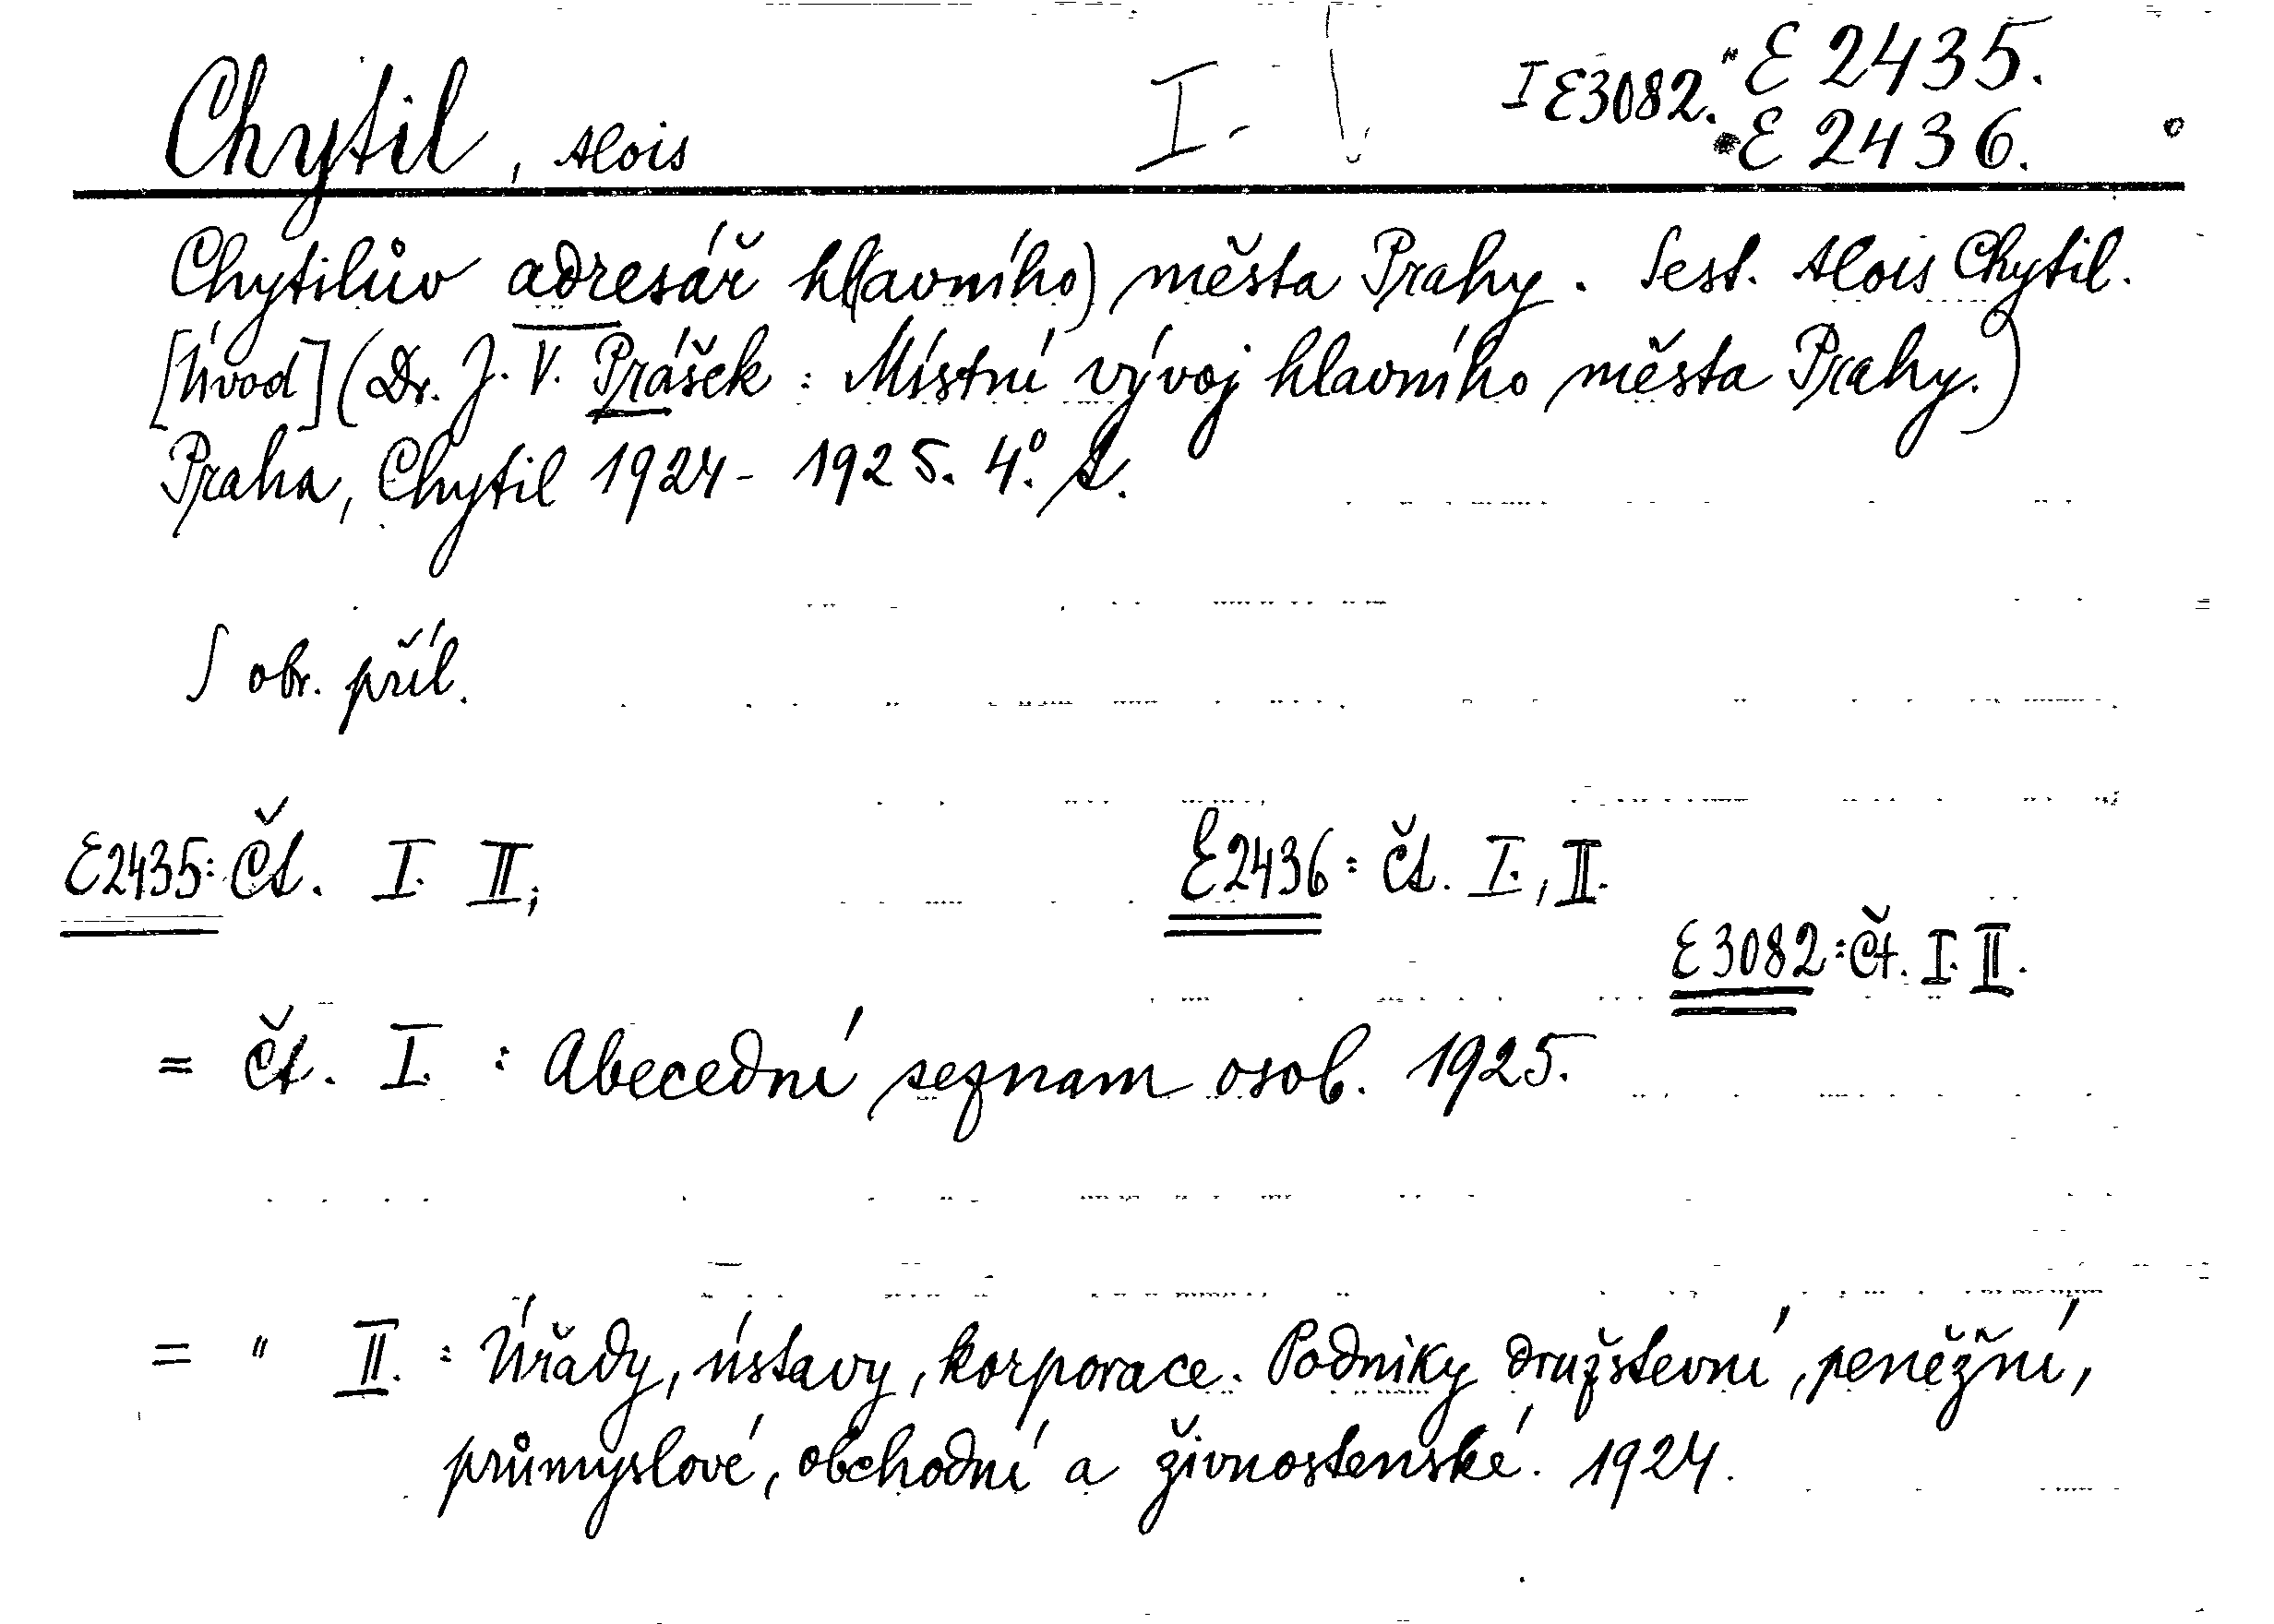 Chytil, Alois I. I E3082. E 2435.
E 2436.
Chytilův adresář hl(avního) města Prahy. Sest. Alois Chytil.
[Úvod] (Dr. J. V. Prášek : Místní vývoj hlavního města Prahy.)
Praha, Chytil 1924 - 1925. 4° s.
S obr. příl.
E2435: Čt. I. II; E2436: čt. I., II.
E 3082: Čt. I. II.
= čt. I. : Abecední seznam osob. 1925.
= " II. : Úřady, ústavy, korporace. Podniky družstevní, peněžní,
průmyslové, obchodní a živnostenské. 1924.